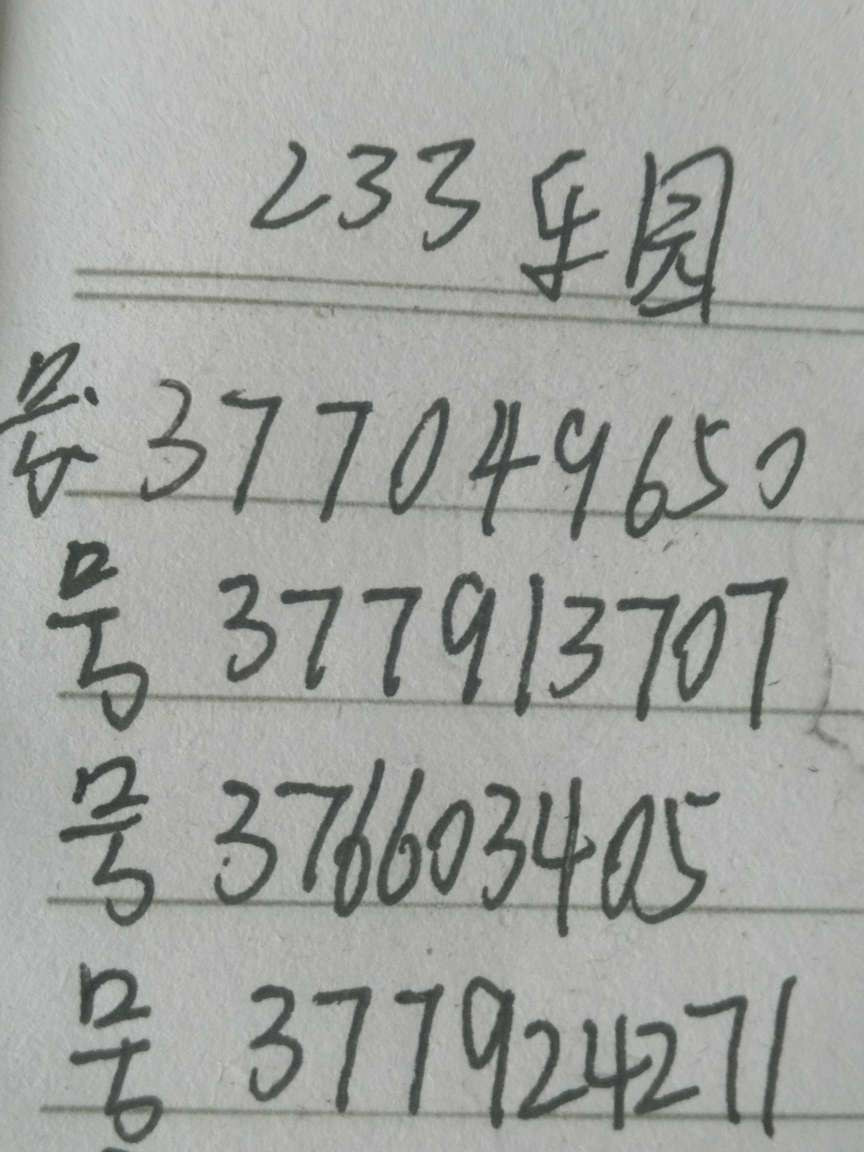 233乐园
号 377049650
号 377913707
号 376603405
号 377924271